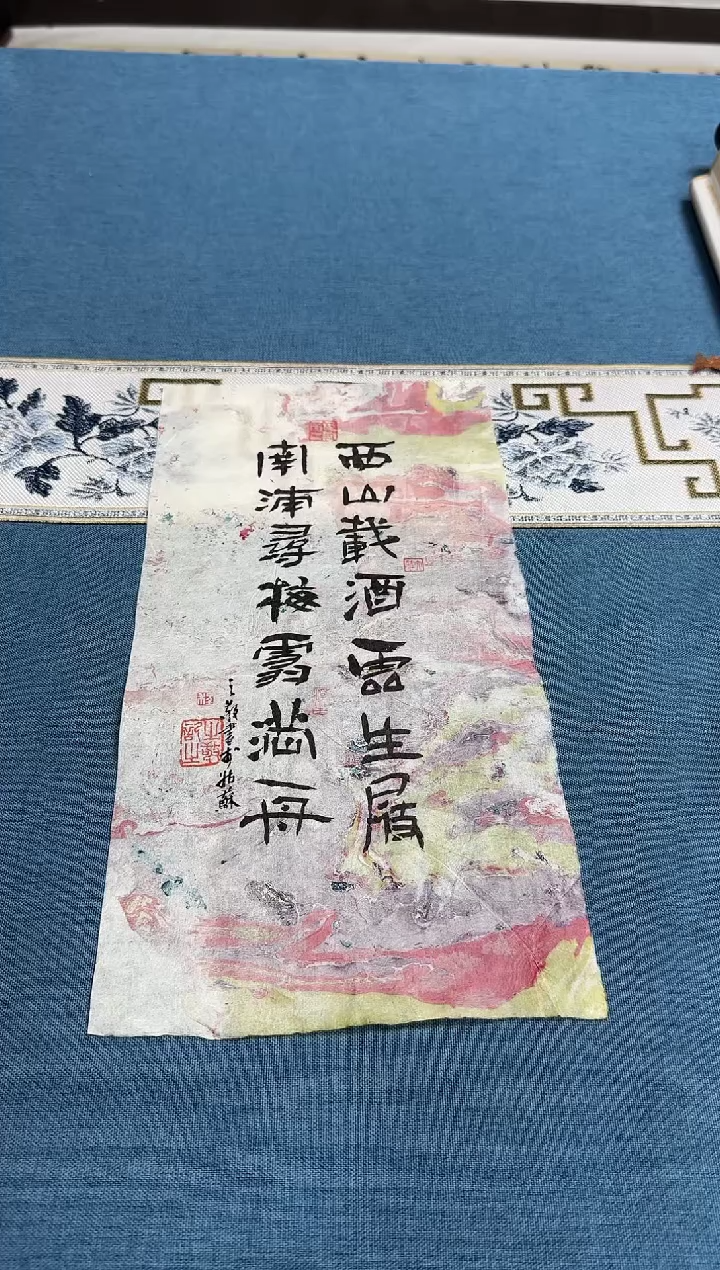 西山載酒雲生屐
南浦尋梅雪滿舟
書於姑蘇